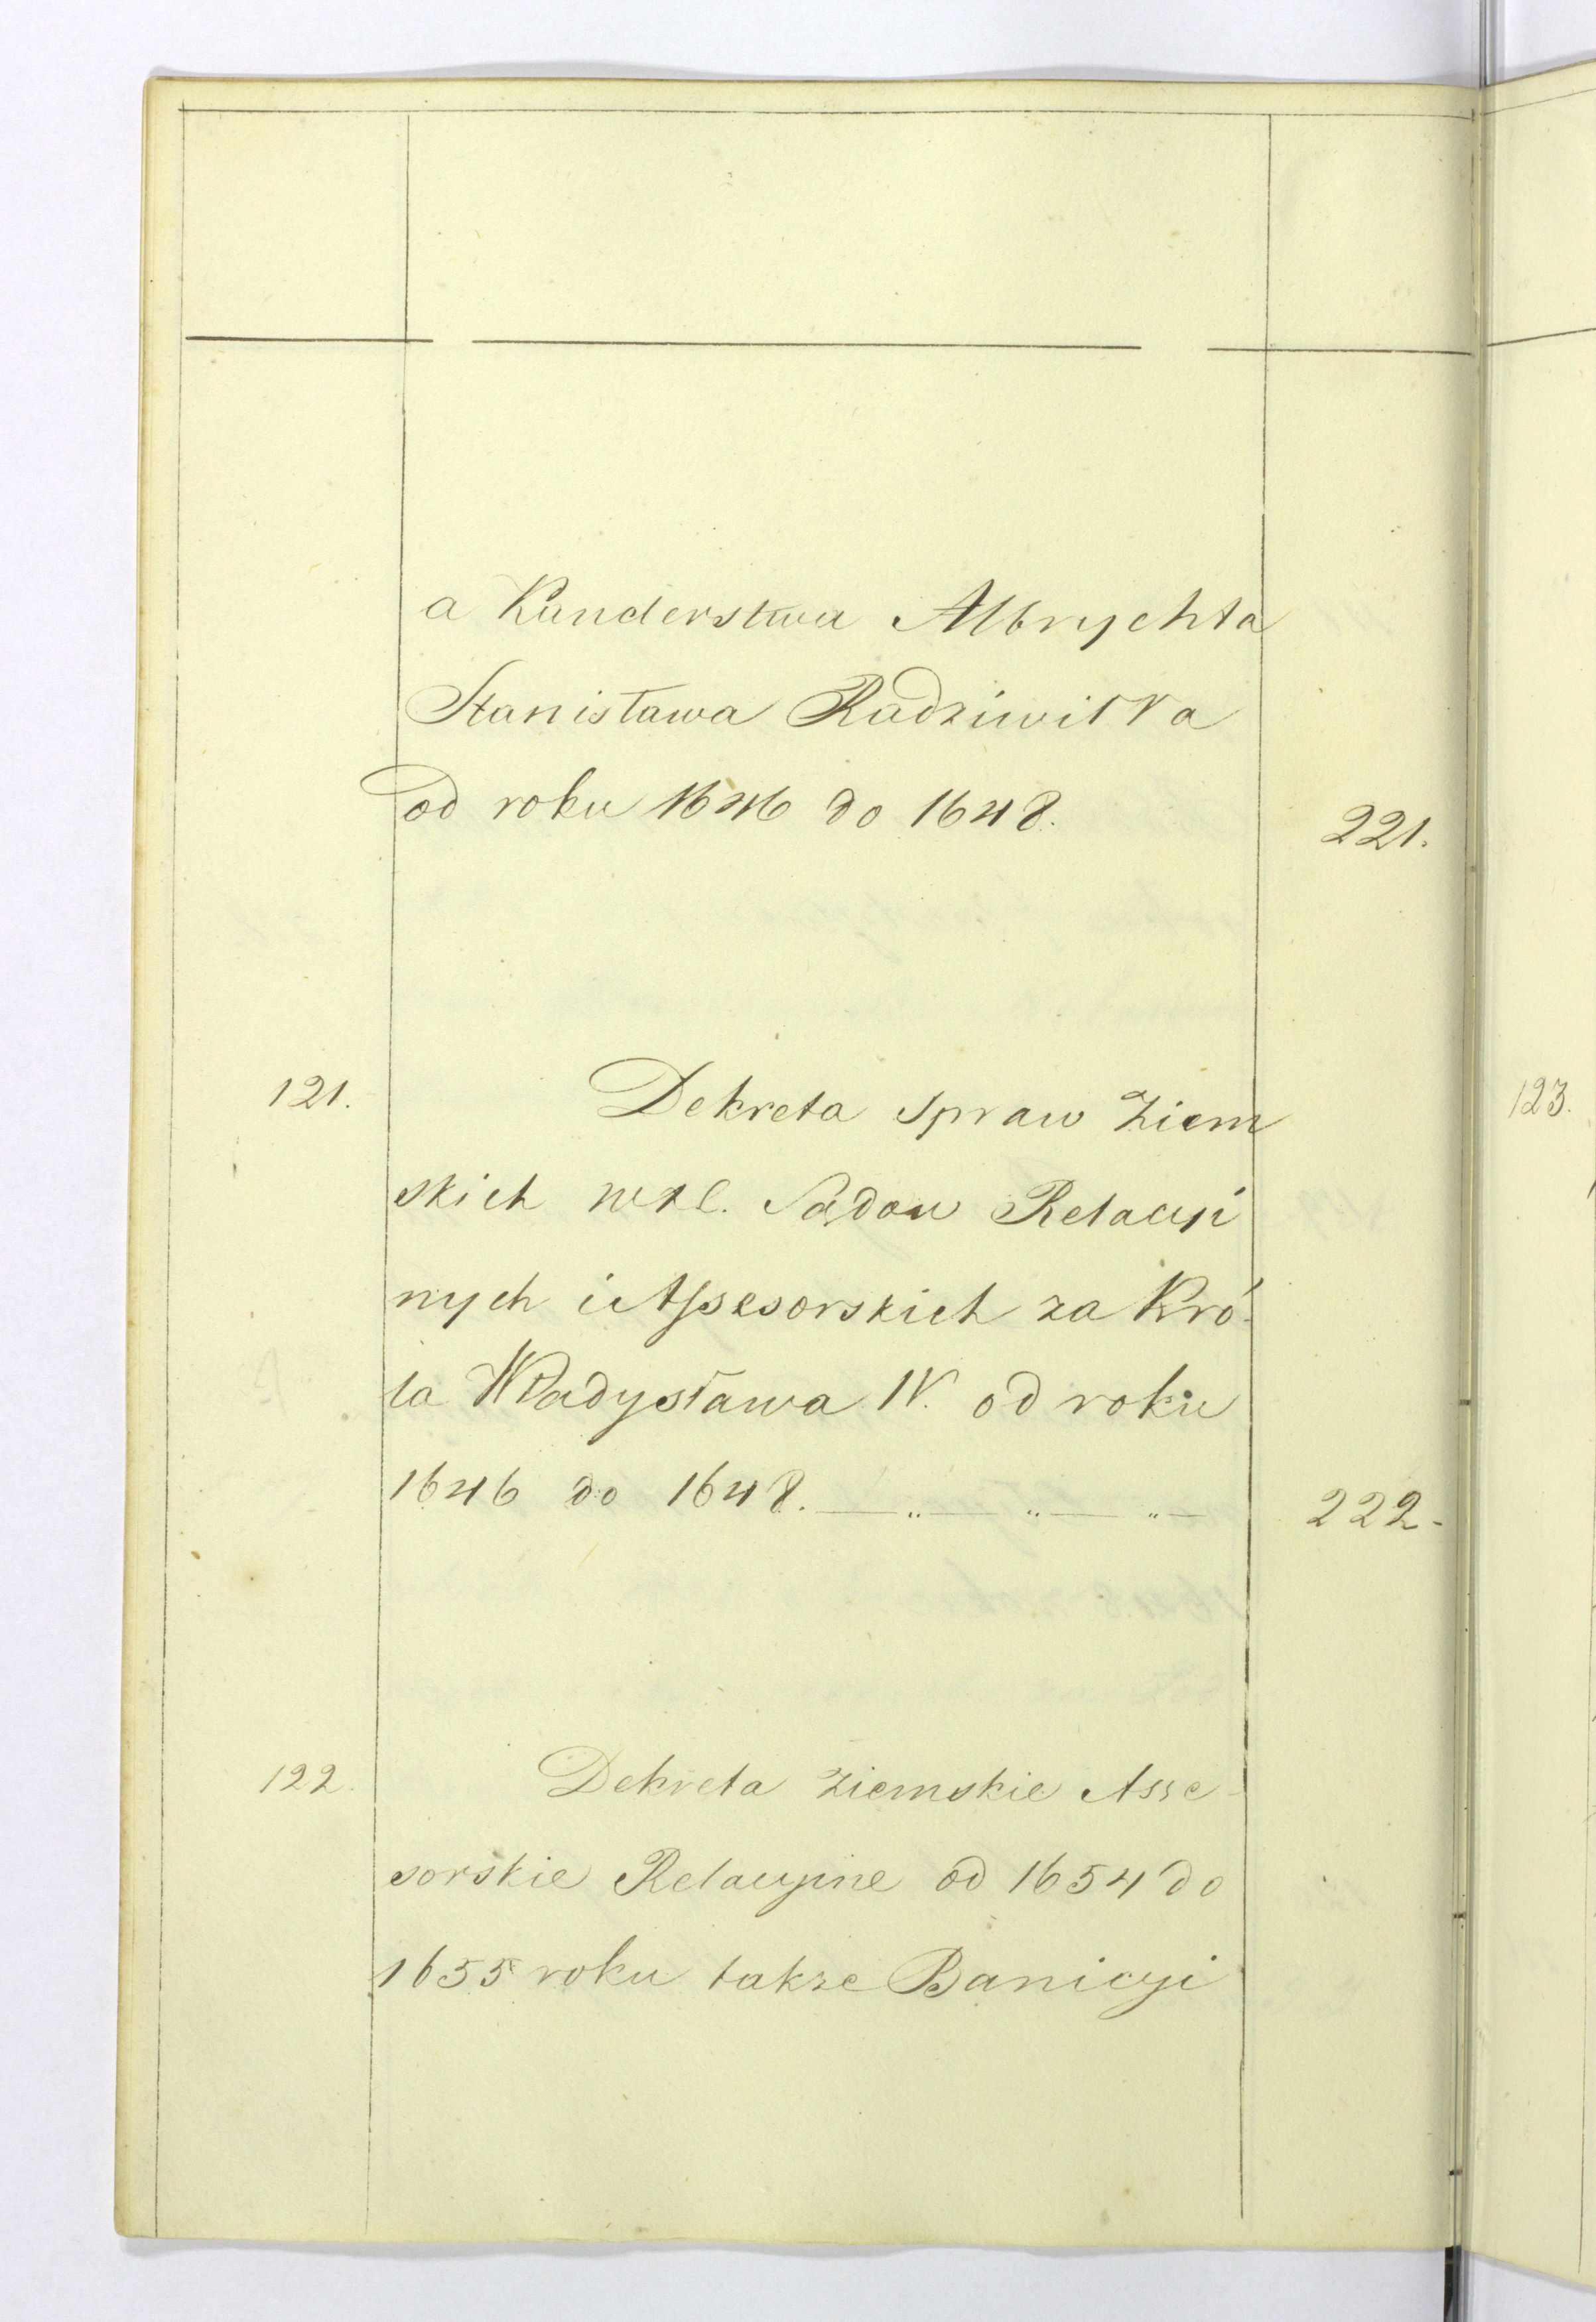 a Kanclerstwa Albrychta
Stanisława Radziwiłła
od roku 1646 do 1648.
221.
121.
Dekreta spraw Ziem
skich Sądow Relacyi
nych i Assesorskich za Kró-
la Władysława IV. od roku
1646 do 1648. — „ — „ — „ —
222-
123.
122.
Dekreta Ziemskie Asse-
sorskie Relacyine od 1654 do
1655 roku takze Banicyi